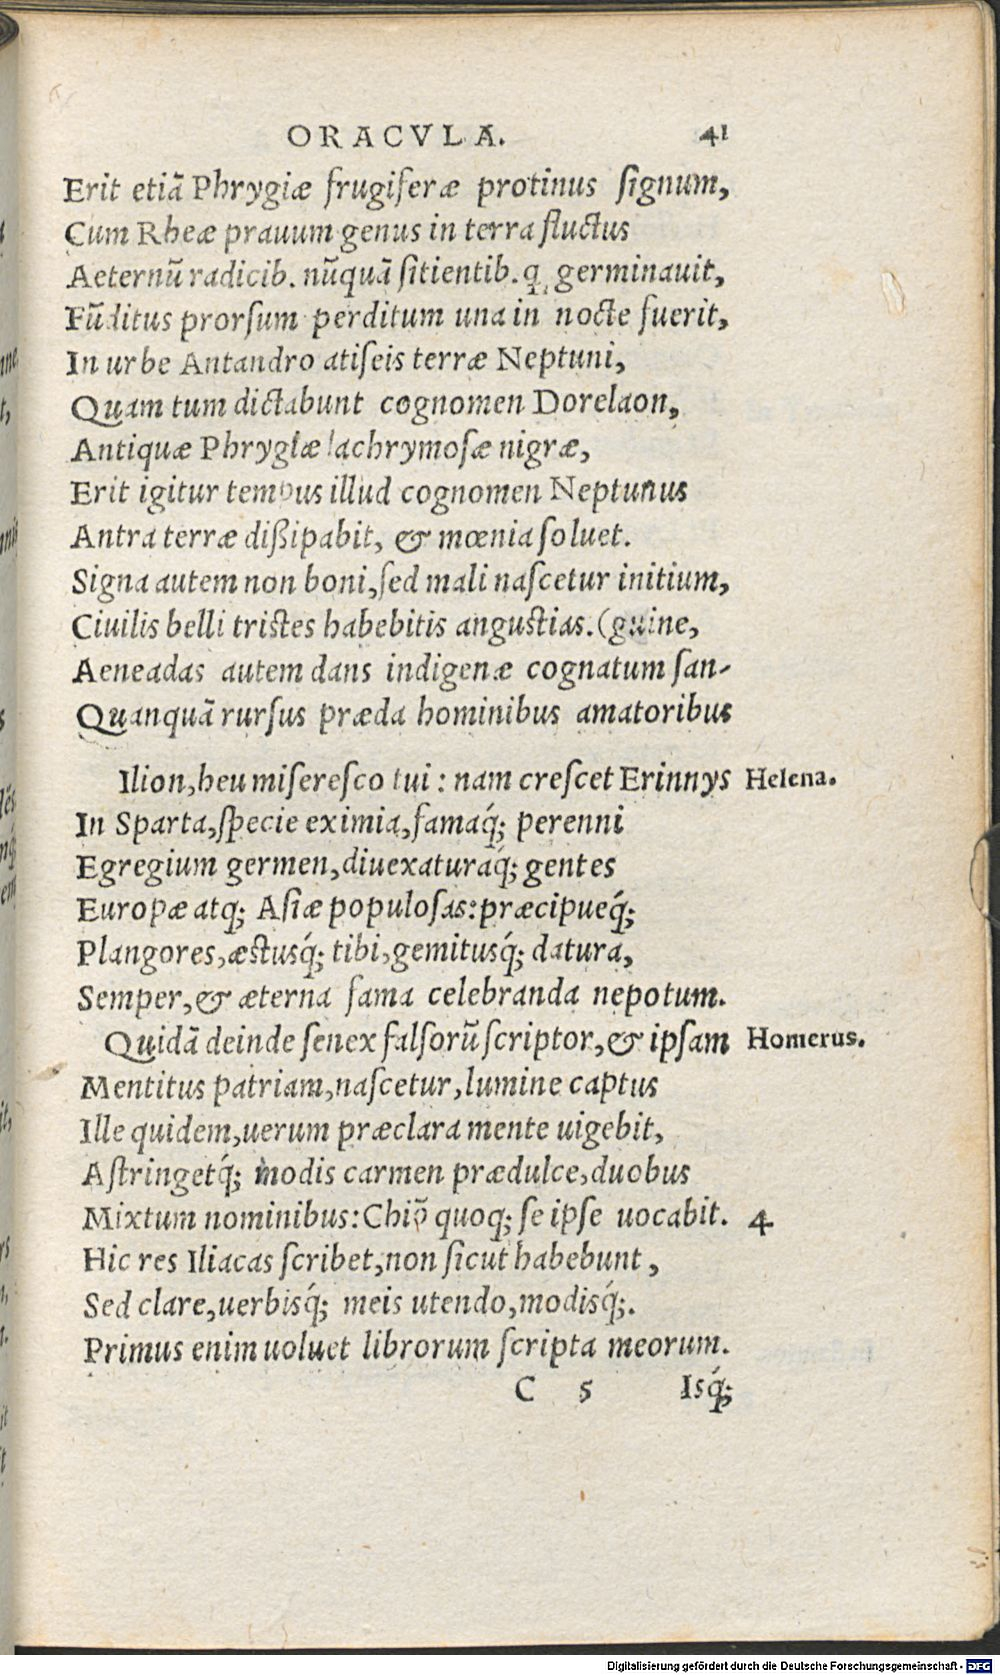 ORACVLA. 41
Erit etiã Phrygiæ frugiferæ protinus ſignum,
Cum Rheæ prauum genus in terra fluctus
Aeternũ radicib. nũquã ſitientib.q; germinauit,
Fũditus prorſum perditum una in nocte fuerit,
In urbe Antandro atiſeis terræ Neptuni,
Quam tum dictabunt cognomen Dorelaon,
Antiquæ Phrygiæ lachrymoſæ nigræ,
Erit igitur tempus illud cognomen Neptunus
Antra terræ dißipabit, & mœnia ſoluet.
Signa autem non boni, ſed mali naſcetur initium,
Ciuilis belli triſtes habebitis anguſtias. (guine,
Aeneadas autem dans indigenæ cognatum ſan-
Quanquã rurſus præda hominibus amatoribus
Ilion, heu miſereſco tui: nam creſcet Erinnys Helena.
In Sparta, ſpecie eximia, famaq́; perenni
Egregium germen, diuexaturaq́; gentes
Europæ atq; Aſiæ populoſas: præcipueq́;
Plangores, æſtusq́; tibi, gemitusq́; datura,
Semper, & æterna fama celebranda nepotum.
Quidã deinde ſenex falſorũ ſcriptor, & ipſam Homerus.
Mentitus patriam, naſcetur, lumine captus
Ille quidem, uerum præclara mente uigebit,
Aſtringetq́; modis carmen prædulce, duobus
Mixtum nominibus: Chiõ quoq; ſe ipſe uocabit. 4
Hic res Iliacas ſcribet, non ſicut habebunt,
Sed clare, uerbisq́; meis utendo, modisq́;.
Primus enim uoluet librorum ſcripta meorum.
C 5 Isq́;
Digitalisierung gefördert durch die Deutsche Forschungsgemeinschaft - DFG